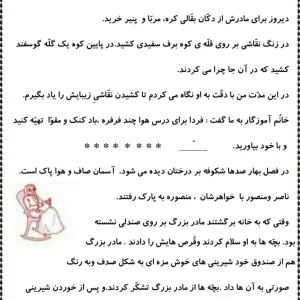 دیروز برای مادرش از دکّان بقّالی کره، مربّا و پنیر خرید.
در زنگ نقّاشی بر روی قلّه ی کوه برف سفیدی کشید.در پایین کوه یک گلّه گوسفند
کشید که در آن جا چرا می کردند.
در این مدّت من با دقّت به او نگاه می کردم تا کشیدن نقّاشیِ زیبایش را یاد بگیرم.
خانُم آموزگار به ما گفت : فردا برای درس هوا چند فرفره ،باد کنک و مقوّا تهیّه کنید
و با خود بیاورید.
* * * * * * * *
در فصل بهار صدها شکوفه بر درختان دیده می شود. آسمان صاف و هوا پاک است.
ناصر ومنصور با خواهرشان ، منصوره به پارک رفتند.
وقتی که به خانه برگشتند مادر بزرگ بر روی صندلی نشسته
بود. بچّه ها به او سلام کردند وقُرص هایش را دادند . مادر بزرگ
هم از صندوق خود شیرینی های خوش مزه ای به شکل صدف وبه رنگ
صورتی به آن ها داد .بچّه ها از مادر بزرگ تشکّر کردند.و پس از خوردن شیرینی